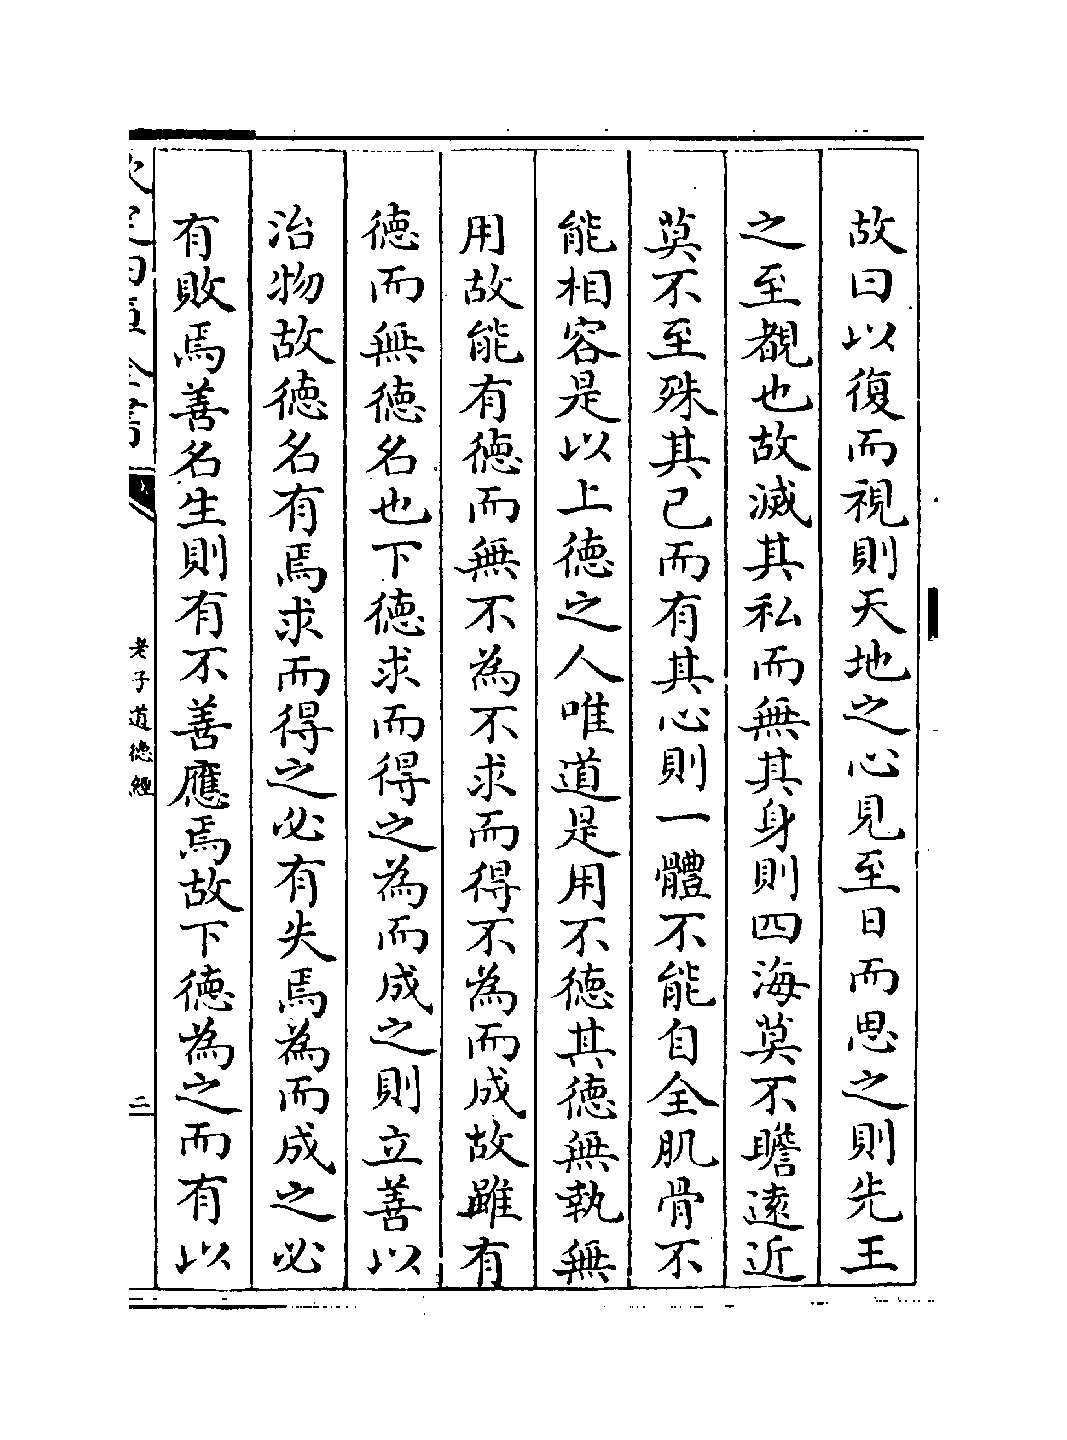 故曰以復而視則天地之心見至日而思之則先王
之至覩也故滅其私而無其身則四海莫不瞻逺近
莫不至殊其已而有其心則一體不能自全肌骨不
能相容是以上徳之人唯道是用不徳其徳無執無
用故能有徳而無不為不求而得不為而成故雖有
徳而無徳名也下徳求而得之為而成之則立善以
治物故徳名有焉求而得之必有失焉為而成之必
有敗焉善名生則有不善應焉故下徳為之而有以
老子道徳經
二